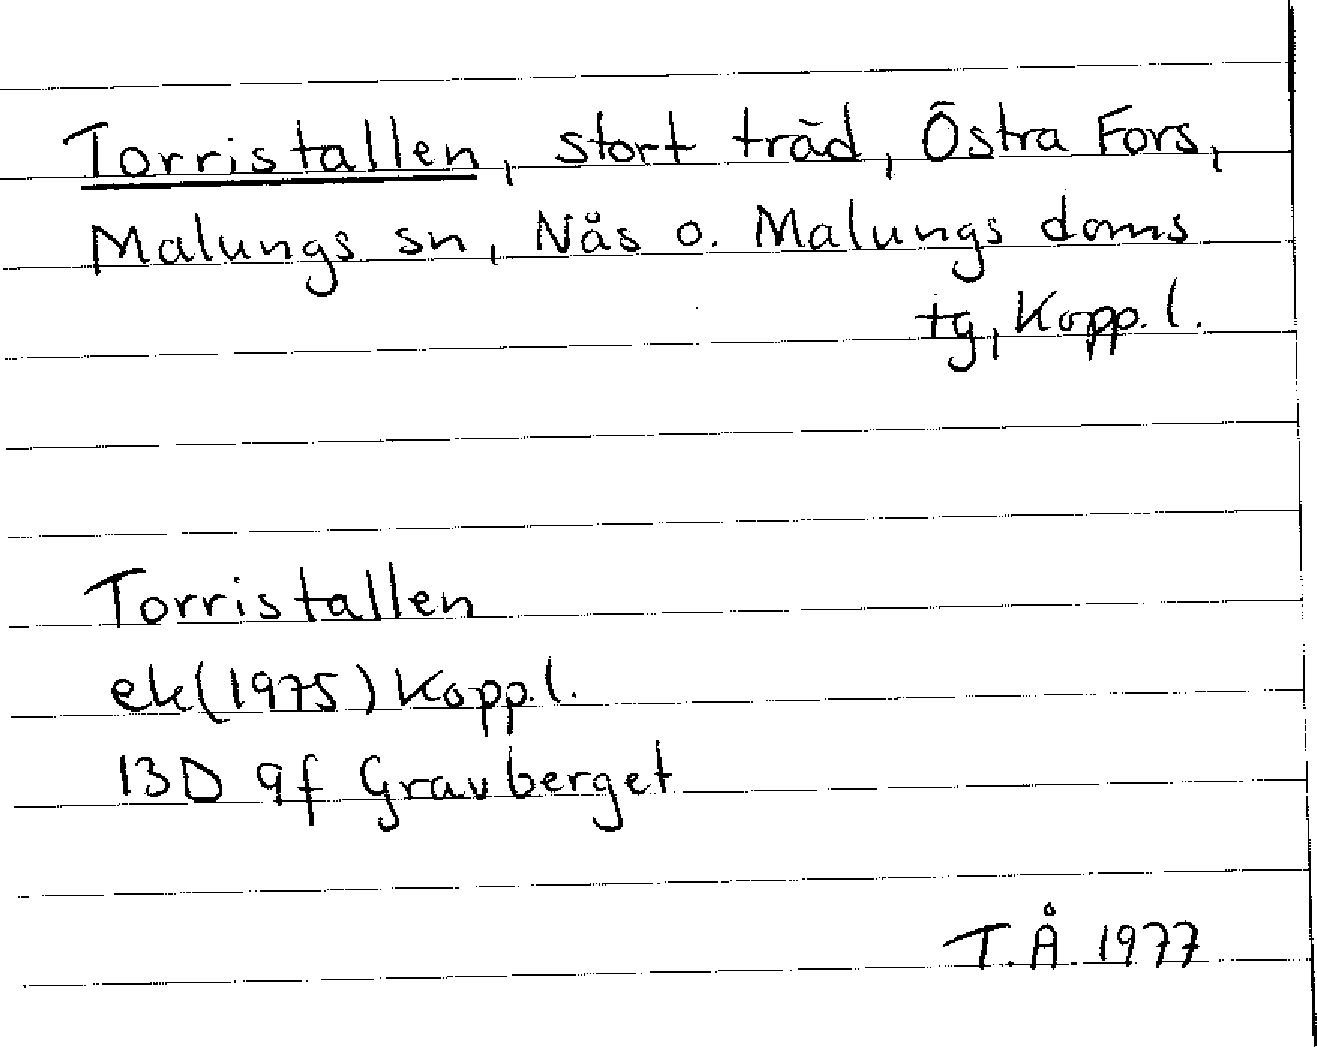 Torristallen, stort träd, Östra Fors,
Malungs sn, Nås o. Malungs doms
tg, Kopp. l.
Torristallen
ek (1975) Kopp. l.
13D 9f Gravberget
T.Å. 1977